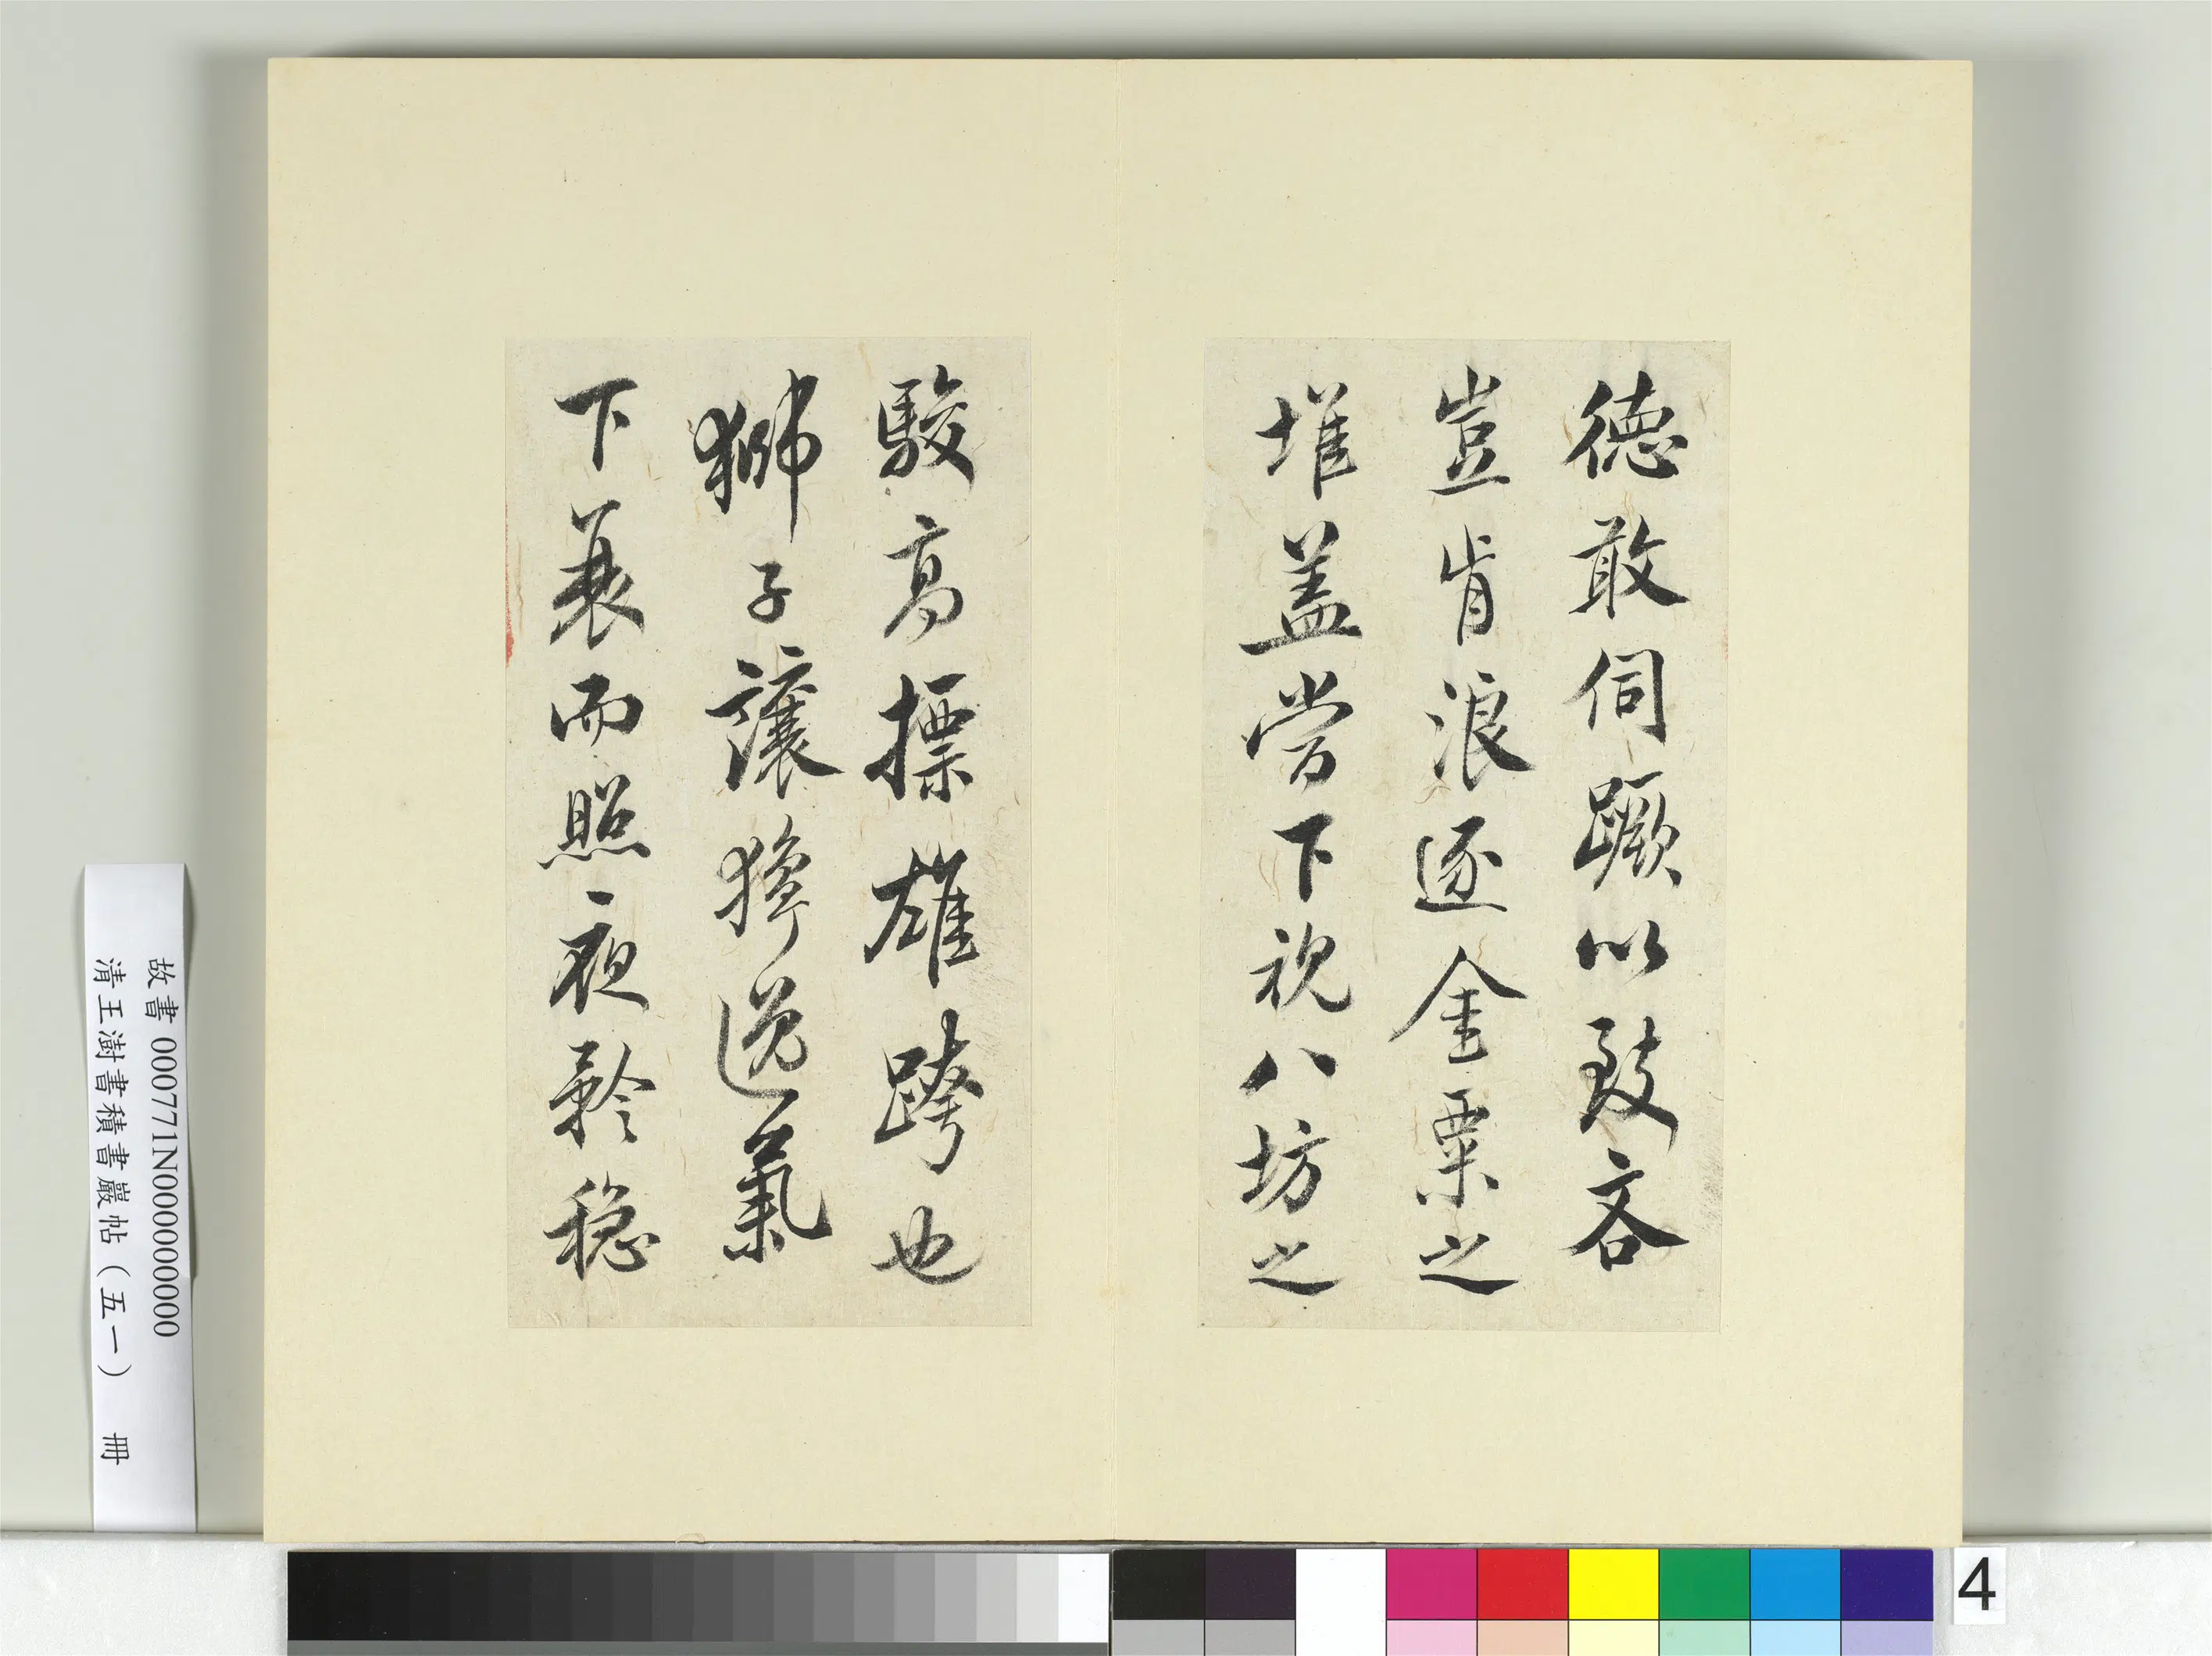 德敢伺蹶以致吝
豈肯浪逐金粟之
堆盖嘗下視八坊之
駿高摽雄跨也
獅子讓獰逸氣
下衰而照夜矜穩
故書 000771N000000000
清王澍書積書巖帖（五一） 冊
4